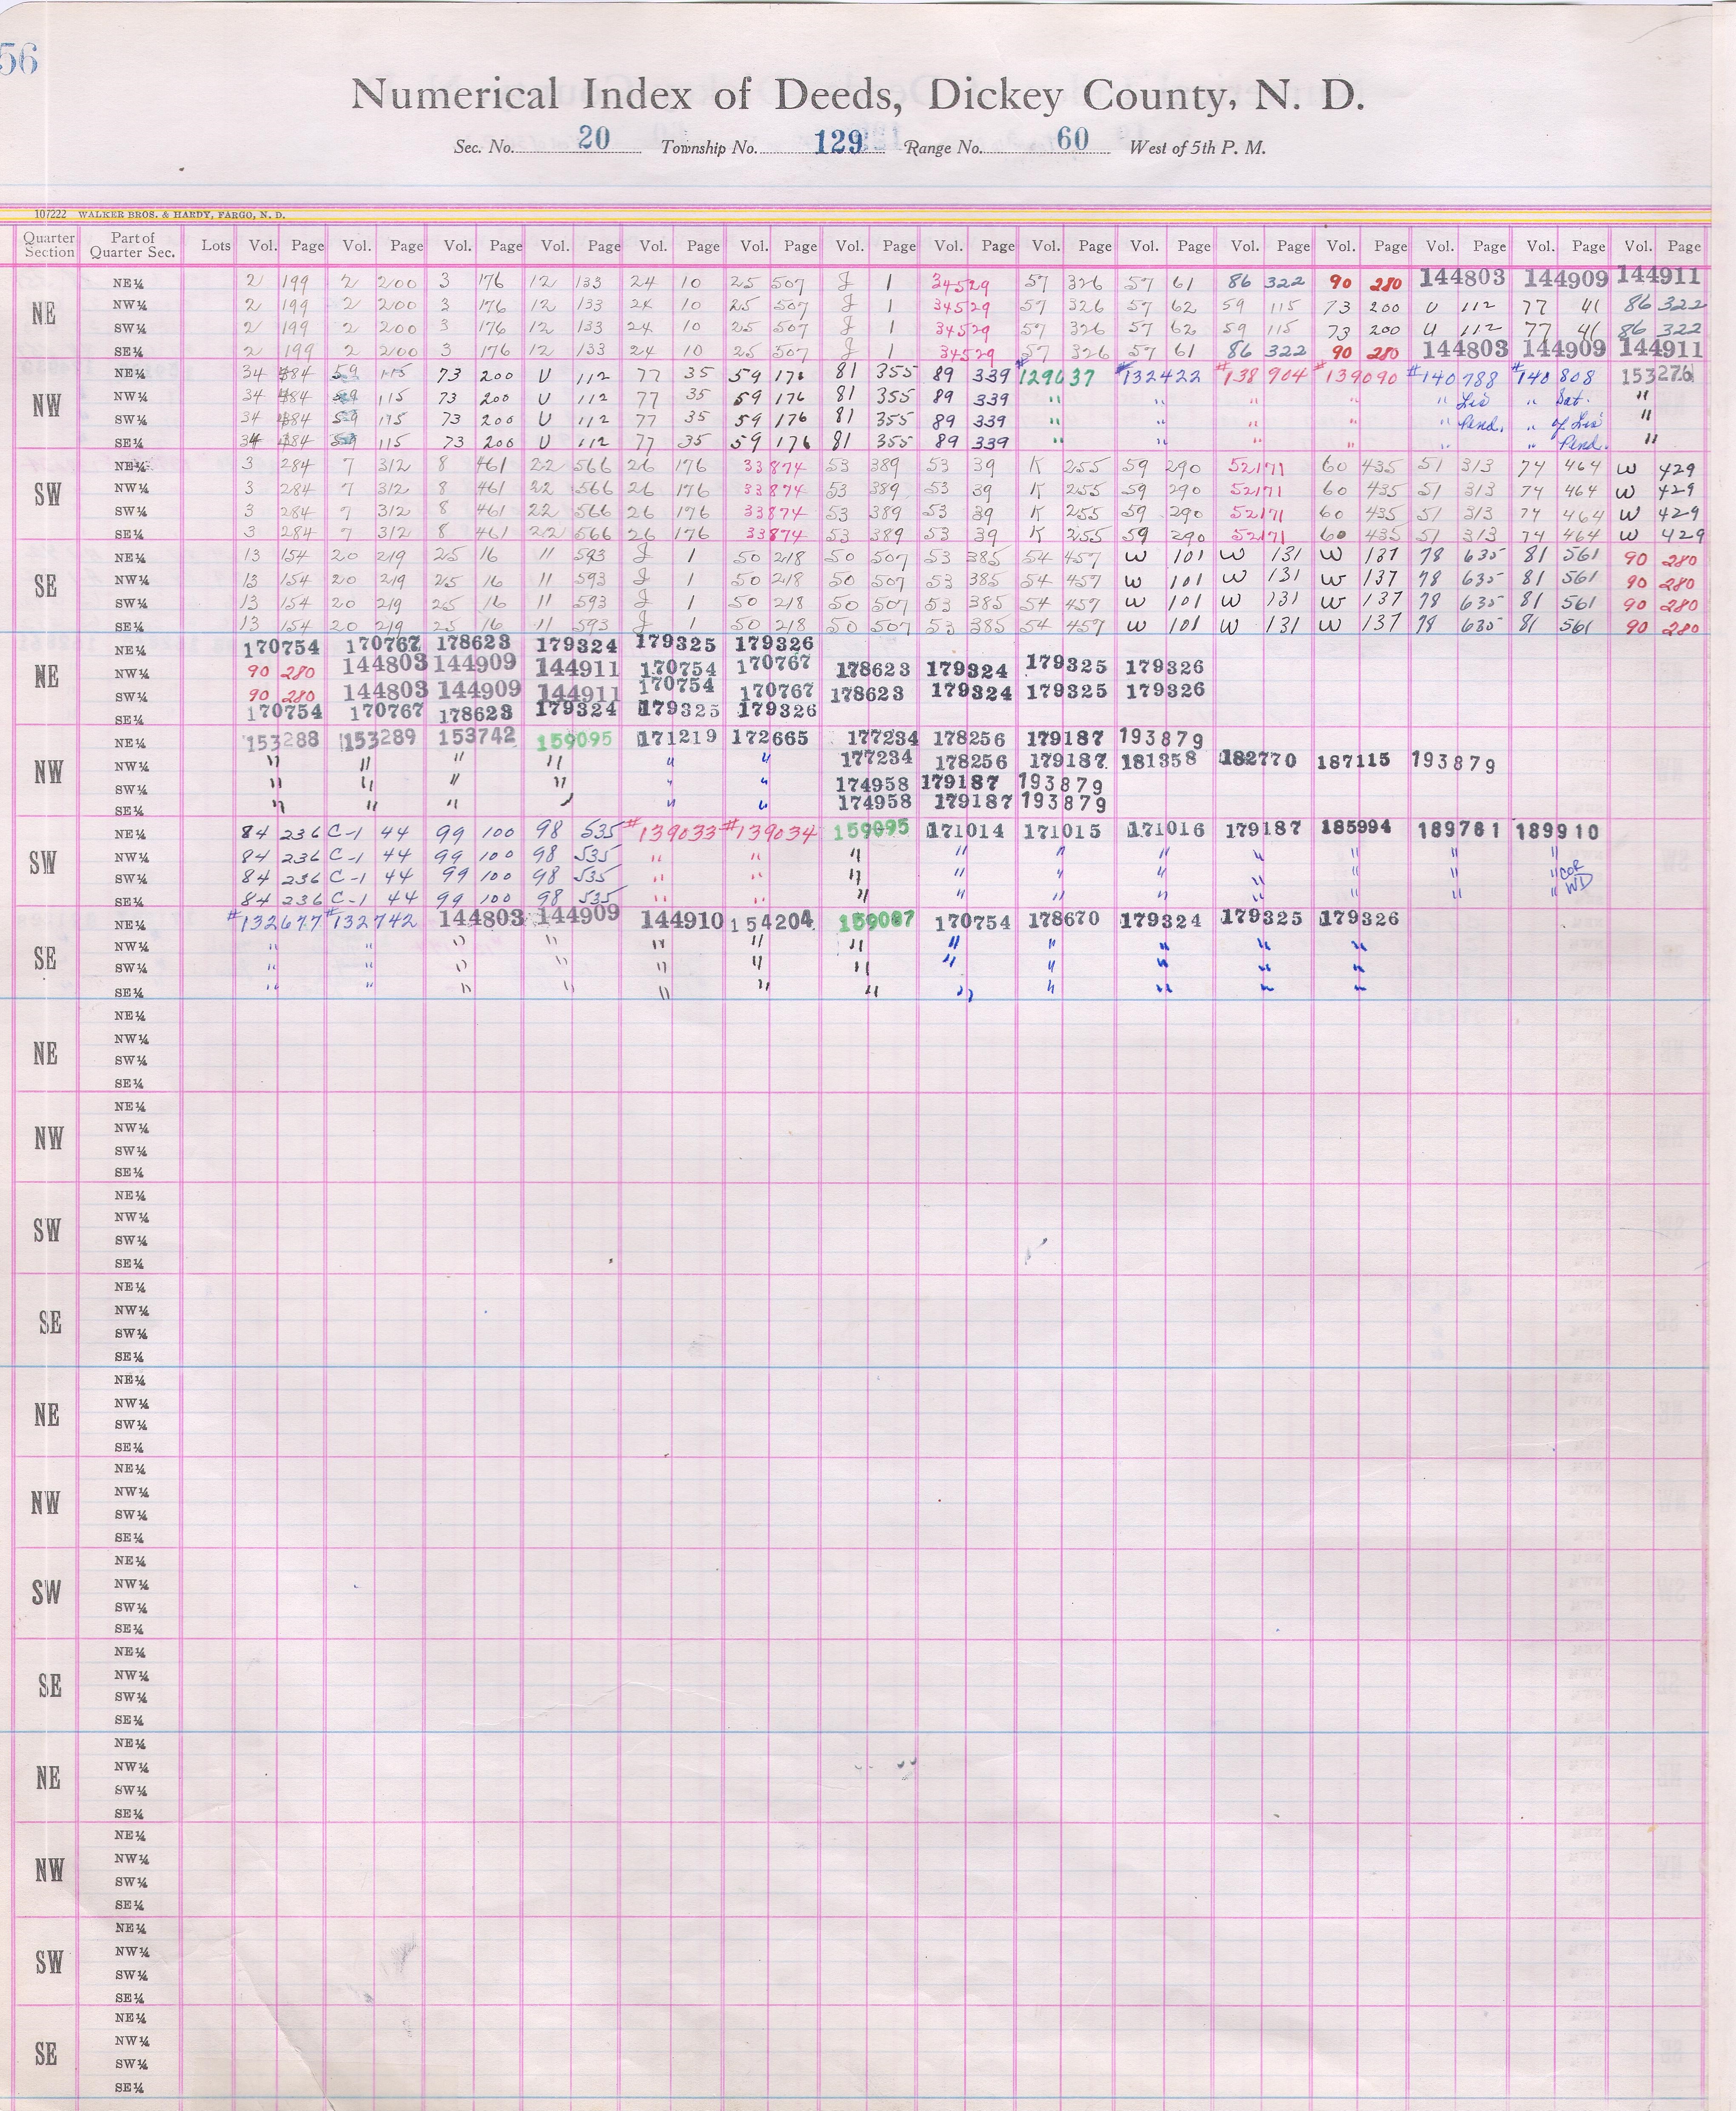 56
Numerical Index of Deeds, Dickey County, N. D.
Sec. No. 20 Township No. 129 Range No. 60 West of 5th P. M.
107222 WALKER BROS. & HARDY, FARGO, N. D.
Quarter Section Part of Quarter Sec. Lots Vol. Page Vol. Page Vol. Page Vol. Page Vol. Page Vol. Page Vol. Page Vol. Page Vol. Page Vol. Page Vol. Page Vol. Page Vol. Page Vol. Page Vol. Page
NE
NE¼ 2 199 2 200 3 176 12 133 24 10 25 507 J 1 34529 57 326 57 61 86 322 90 280 144803 144909 144911
NW¼ 2 199 2 200 3 176 12 133 24 10 25 507 J 1 34529 57 326 57 62 59 115 73 200 U 112 77 41 86 322
SW¼ 2 199 2 200 3 176 12 133 24 10 25 507 J 1 34529 57 326 57 62 59 115 73 200 U 112 77 41 86 322
SE¼ 2 199 2 200 3 176 12 133 24 10 25 507 J 1 34529 57 326 57 61 86 322 90 280 144803 144909 144911
NW
NE¼ 34 484 59 115 73 200 U 112 77 35 59 176 81 355 89 339 #129637 #132422 #138904 #139090 #140788 #140808 153276
NW¼ 34 484 59 115 73 200 U 112 77 35 59 176 81 355 89 339 " " " " " Lis " Sat. "
SW¼ 34 484 59 115 73 200 U 112 77 35 59 176 81 355 89 339 " " " " " Pend. " of Lis "
SE¼ 34 484 59 115 73 200 U 112 77 35 59 176 81 355 89 339 " " " " " " Pend. "
SW
NE¼ 3 284 7 312 8 461 22 566 26 176 33874 53 389 53 39 K 255 59 290 52171 60 435 51 313 74 464 W 429
NW¼ 3 284 7 312 8 461 22 566 26 176 33874 53 389 53 39 K 255 59 290 52171 60 435 51 313 74 464 W 429
SW¼ 3 284 7 312 8 461 22 566 26 176 33874 53 389 53 39 K 255 59 290 52171 60 435 51 313 74 464 W 429
SE¼ 3 284 7 312 8 461 22 566 26 176 33874 53 389 53 39 K 255 59 290 52171 60 435 51 313 74 464 W 429
SE
NE¼ 13 154 20 219 25 16 11 593 J 1 50 218 50 507 53 385 54 457 W 101 W 131 W 137 78 635 81 561 90 280
NW¼ 13 154 20 219 25 16 11 593 J 1 50 218 50 507 53 385 54 457 W 101 W 131 W 137 78 635 81 561 90 280
SW¼ 13 154 20 219 25 16 11 593 J 1 50 218 50 507 53 385 54 457 W 101 W 131 W 137 78 635 81 561 90 280
SE¼ 13 154 20 219 25 16 11 593 J 1 50 218 50 507 53 385 54 457 W 101 W 131 W 137 78 635 81 561 90 280
NE
NE¼ 170754 170767 178623 179324 179325 179326
NW¼ 90 280 144803 144909 144911 170754 170767 178623 179324 179325 179326
SW¼ 90 280 144803 144909 144911 170754 170767 178623 179324 179325 179326
SE¼ 170754 170767 178623 179324 179325 179326
NW
NE¼ 153288 153289 153742 159095 171219 172665 177234 178256 179187 193879
NW¼ " " " " " " 177234 178256 179187 181358 182770 187115 193879
SW¼ " " " " " " 174958 179187 193879
SE¼ " " " " " " 174958 179187 193879
SW
NE¼ 84 236 C-1 44 99 100 98 535 #139033 #139034 159095 171014 171015 171016 179187 185994 189761 189910
NW¼ 84 236 C-1 44 99 100 98 535 " " " " " " " " " "
SW¼ 84 236 C-1 44 99 100 98 535 " " " " " " " " " " COR
SE¼ 84 236 C-1 44 99 100 98 535 " " " " " " " " " " WD
SE
NE¼ #132677 #132742 144803 144909 144910 154204 159087 170754 178670 179324 179325 179326
NW¼ " " " " " " " " " " " "
SW¼ " " " " " " " " " " " "
SE¼ " " " " " " " " " " " "
NE
NE¼
NW¼
SW¼
SE¼
NW
NE¼
NW¼
SW¼
SE¼
SW
NE¼
NW¼
SW¼
SE¼
SE
NE¼
NW¼
SW¼
SE¼
NE
NE¼
NW¼
SW¼
SE¼
NW
NE¼
NW¼
SW¼
SE¼
SW
NE¼
NW¼
SW¼
SE¼
SE
NE¼
NW¼
SW¼
SE¼
NE
NE¼
NW¼
SW¼
SE¼
NW
NE¼
NW¼
SW¼
SE¼
SW
NE¼
NW¼
SW¼
SE¼
SE
NE¼
NW¼
SW¼
SE¼